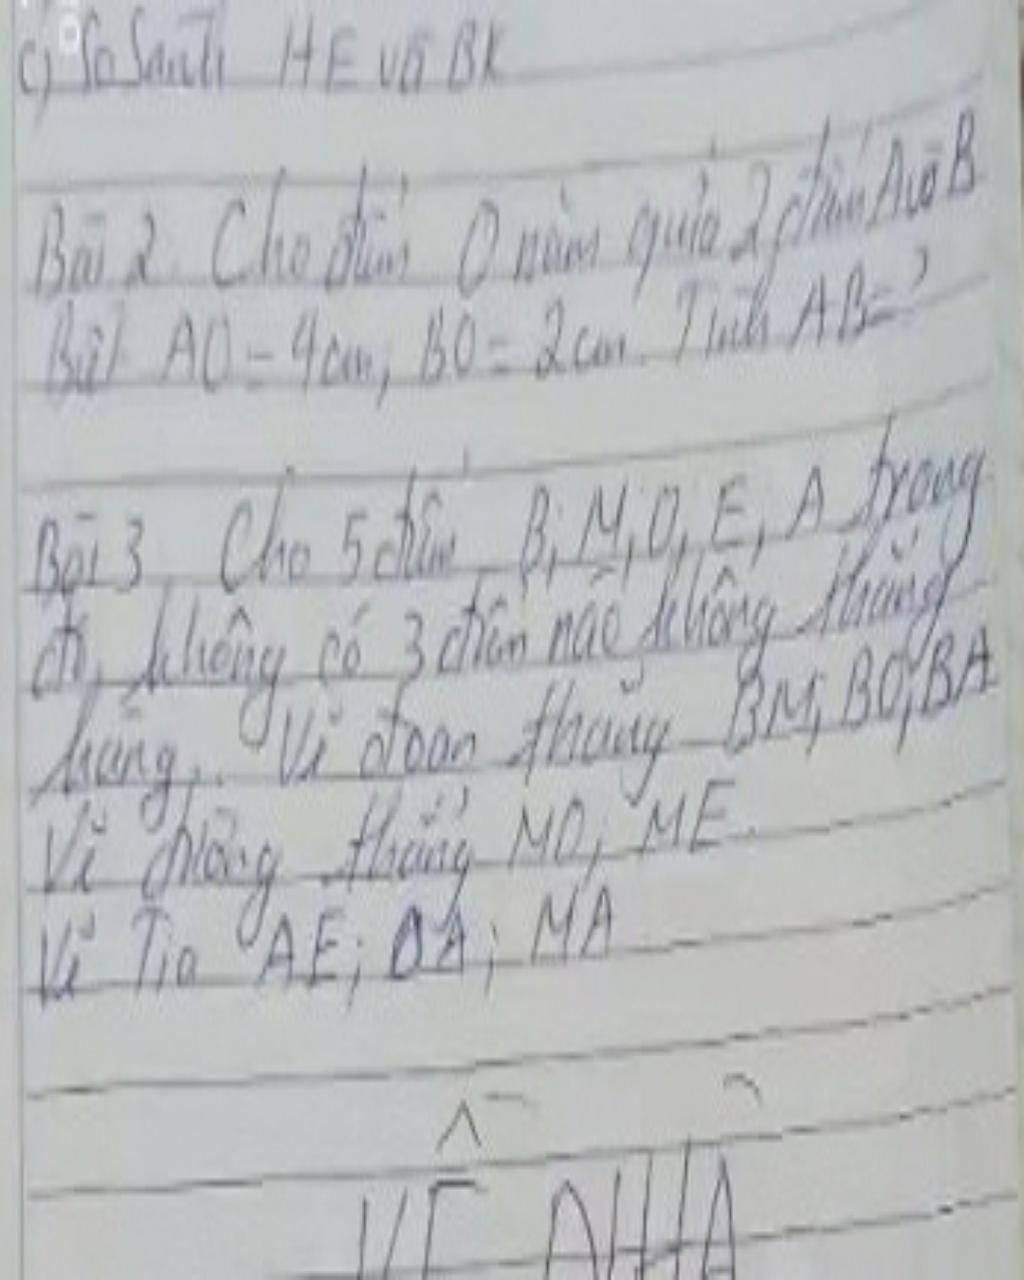 c) So Sánh HE và BK
Bài 2 Cho điểm O nằm giữa 2 điểm A và B
Biết AO = 4cm, BO = 2cm. Tính AB = ?
Bài 3 Cho 5 điểm B, M, O, E, A trong
đó, không có 3 điểm nào không thẳng
hàng. Vẽ đoạn thẳng BM, BO, BA
Vẽ đường thẳng MO, ME.
Vẽ Tia AE; OA; MA